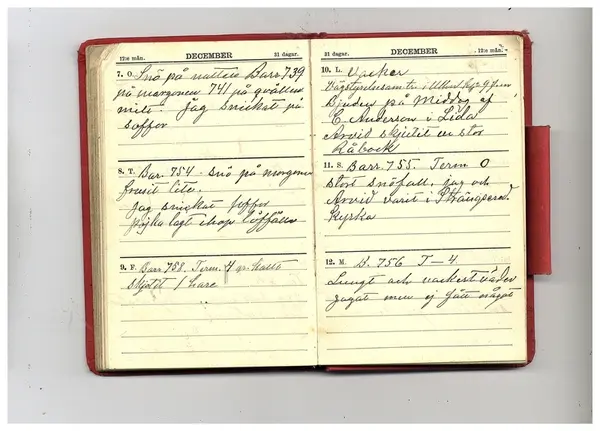 12:e mån. DECEMBER 31 dagar.
7. O. Snö på natten Barr 739
på morgonen 741 på qvällen
mild. Jag snickat på
soffor
8. T. Bar. 754 - snö på morgonen
frusit lite.
Jag snickat soffor
pojkarna lagt ihop
9. F. Barr 758. Term. 4 gr. kallt
skjutit 1 hare
31 dagar. DECEMBER 12:e mån.
10. L. Vacker
Vägstyrelsesamtr. i kl. 9 f.m
Bjuden på Middag af
C. Anderson i Lida
Arvid skjutit en stor
Råbock
11. S. Barr. 755. Term 0
stort snöfall, jag och
Arvid varit i Strängsered
kyrka
12. M. B. 756 T - 4
Lungt och vackert väder
jagat men ej fått något